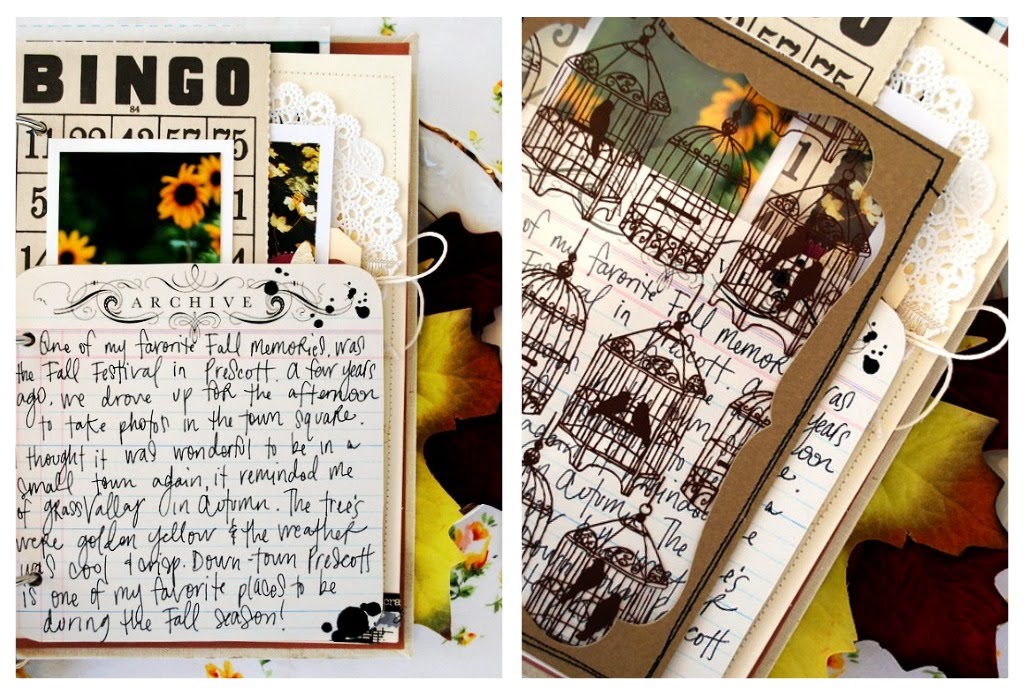 BINGO
84
11 22 42 57 75
5
1
14
ARCHIVE
One of my favorite Fall memories, was
the Fall Festival in Prescott. A few years
ago, we drove up for the afternoon
to take photos in the town square.
I thought it was wonderful to be in a
small town again, it reminded me
of grass valley in Autumn. The tree's
were golden yellow & the weather
was cool & crisp. Down-town Prescott
is one of my favorite places to be
during the Fall season!
cra
O
57 75
1
of my favorite Fall memor
Festival in Prescott. A
as
years
noon
e.
in a
Autumn. The
e's
r
scott